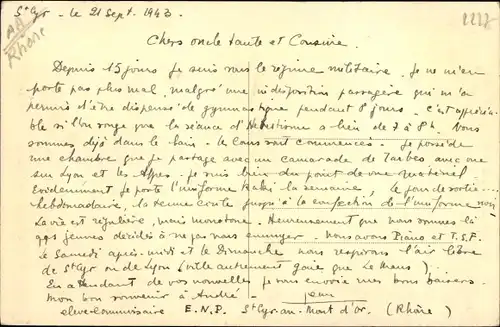 St Cyr - le 21 Sept. 1943.
AA
Rhône
Chers oncle tante et Cousine.
Depuis 15 jours je suis sous le régime militaire. Je ne m'en
porte pas plus mal, malgré une indisposition passagère qui m'a
permis d'être dispensé de gymnastique pendant 8 jours. C'est appréciа-
ble si l'on songe que la séance d'Hébertisme a lieu de 7 à 8h. Nous
sommes déjà dans le bain. Les Cours ont commencés. Je possède
une chambre que je partage avec un camarade de Tarbes avec vue
sur Lyon et les Alpes. Je suis bien du point de vue matériel.
Evidemment je porte l'uniforme Kaki la semaine, le jour de sortie
hebdomadaire, la tenue civile jusqu'à la confection de l'uniforme noir
La vie est régulière, mais monotone. Heureusement que nous sommes
gos jeunes décidés à ne pas nous ennuyer nous avons Piano et T.S.F.
Le Samedi après-midi et le Dimanche nous respirons l'air libre
de St Cyr ou de Lyon (ville autrement gaie que Le Mans)
En attendant de vos nouvelles je vous envoie mes bons baisers.
Mon bon souvenir à André. Jean
élève commissaire E.N.P. St Cyr-au-Mont d'or. (Rhône)